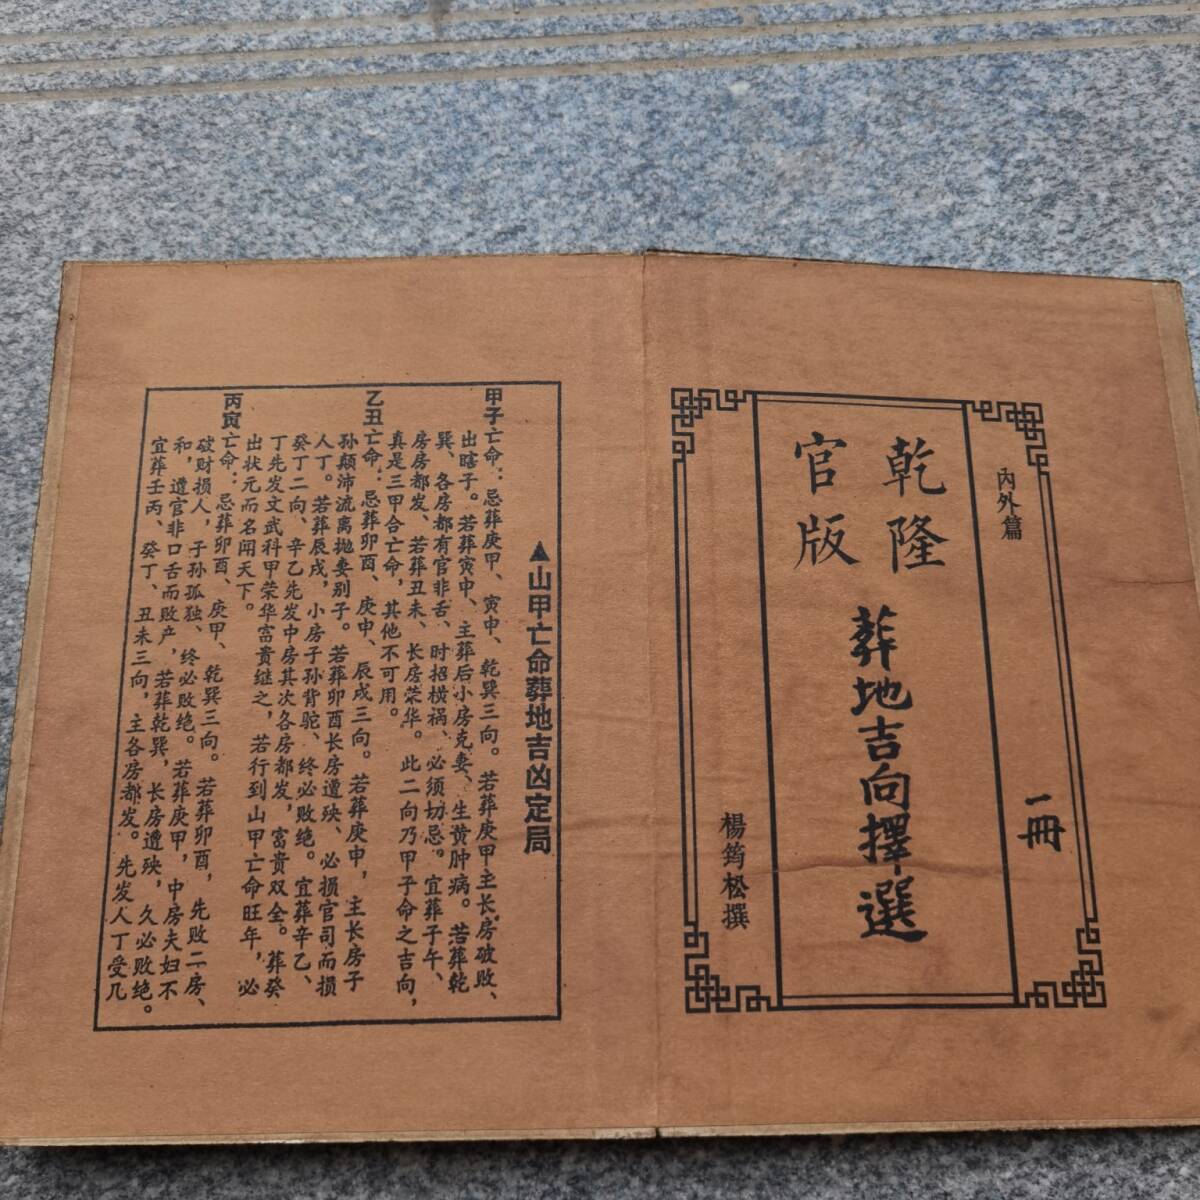 內外篇
一冊
乾隆
官版
葬地吉向擇選
楊筠松撰
▲山甲亡命葬地吉凶定局
甲子亡命：忌葬庚甲、寅申、乾巽三向。若葬庚甲主长房破败、
出瞎子。若葬寅申、主葬后小房克妻、生黄肿病。若葬乾
巽、各房都有官非舌、时招横祸、必须切忌。宜葬子午、
房房都发、若葬丑未、长房荣华。此二向乃甲子命之吉向，
真是三甲合亡命，其他不可用。
乙丑亡命：忌葬卯酉、庚申、辰戌三向。若葬庚申，主长房子
孙颠沛流离抛妻别子。若葬卯酉长房遭殃、必损官司而损
人丁。若葬辰戌，小房子孙背驼、终必败绝。宜葬辛乙、
癸丁二向、辛乙先发中房其次各房都发，富贵双全。葬癸
丁先发文武科甲荣华富贵继之，若行到山甲亡命旺年，必
出状元而名闻天下。
丙寅亡命：忌葬卯酉、庚甲、乾巽三向。若葬卯酉，先败二房、
破财损人，子孙孤独、终必败绝。若葬庚甲，中房夫妇不
和，遭官非口舌而败产，若葬乾巽，长房遭殃，久必败绝。
宜葬壬丙、癸丁、丑未三向，主各房都发。先发人丁受几